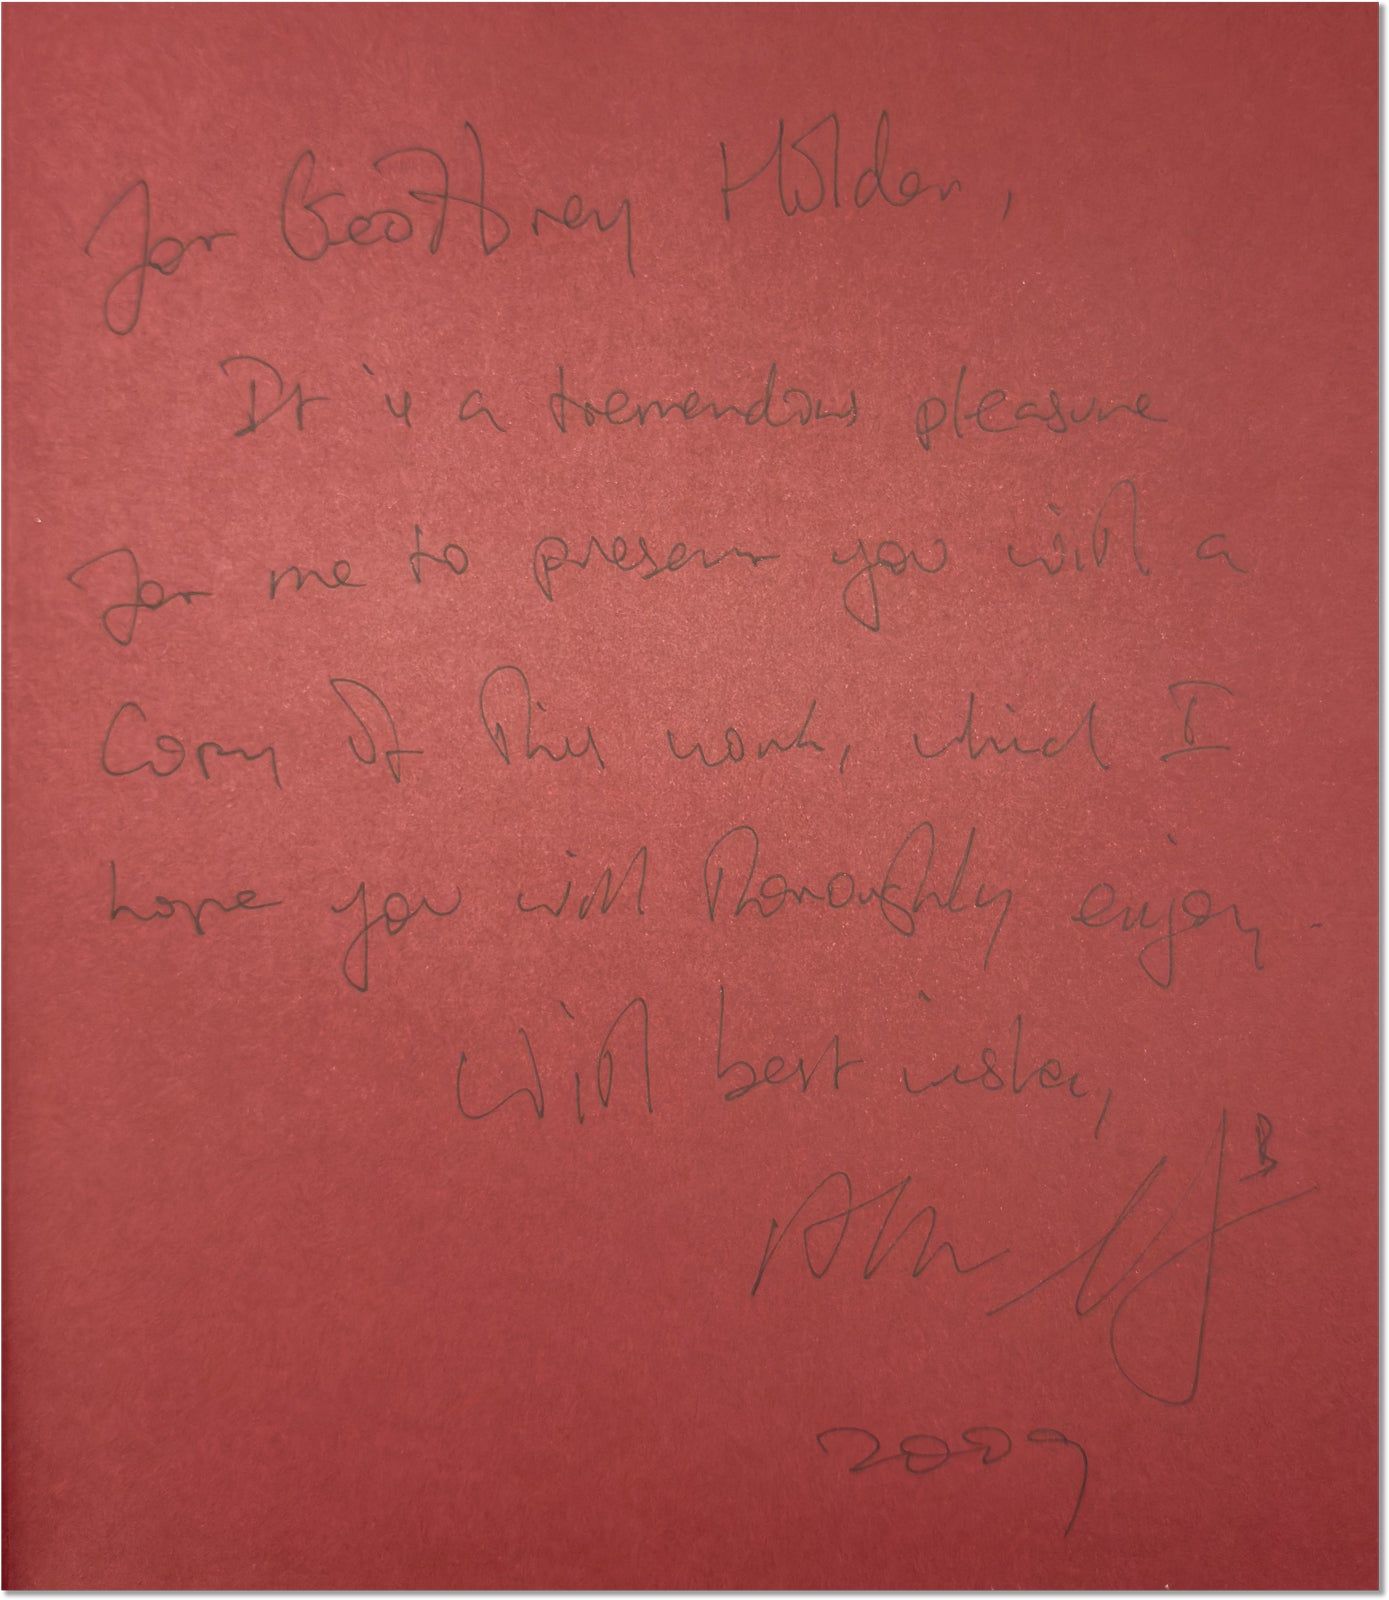 For Geoffrey Holder,
It is a tremendous pleasure
for me to present you with a
Copy of this work, which I
hope you will thoroughly enjoy.
With best wishes,
2009